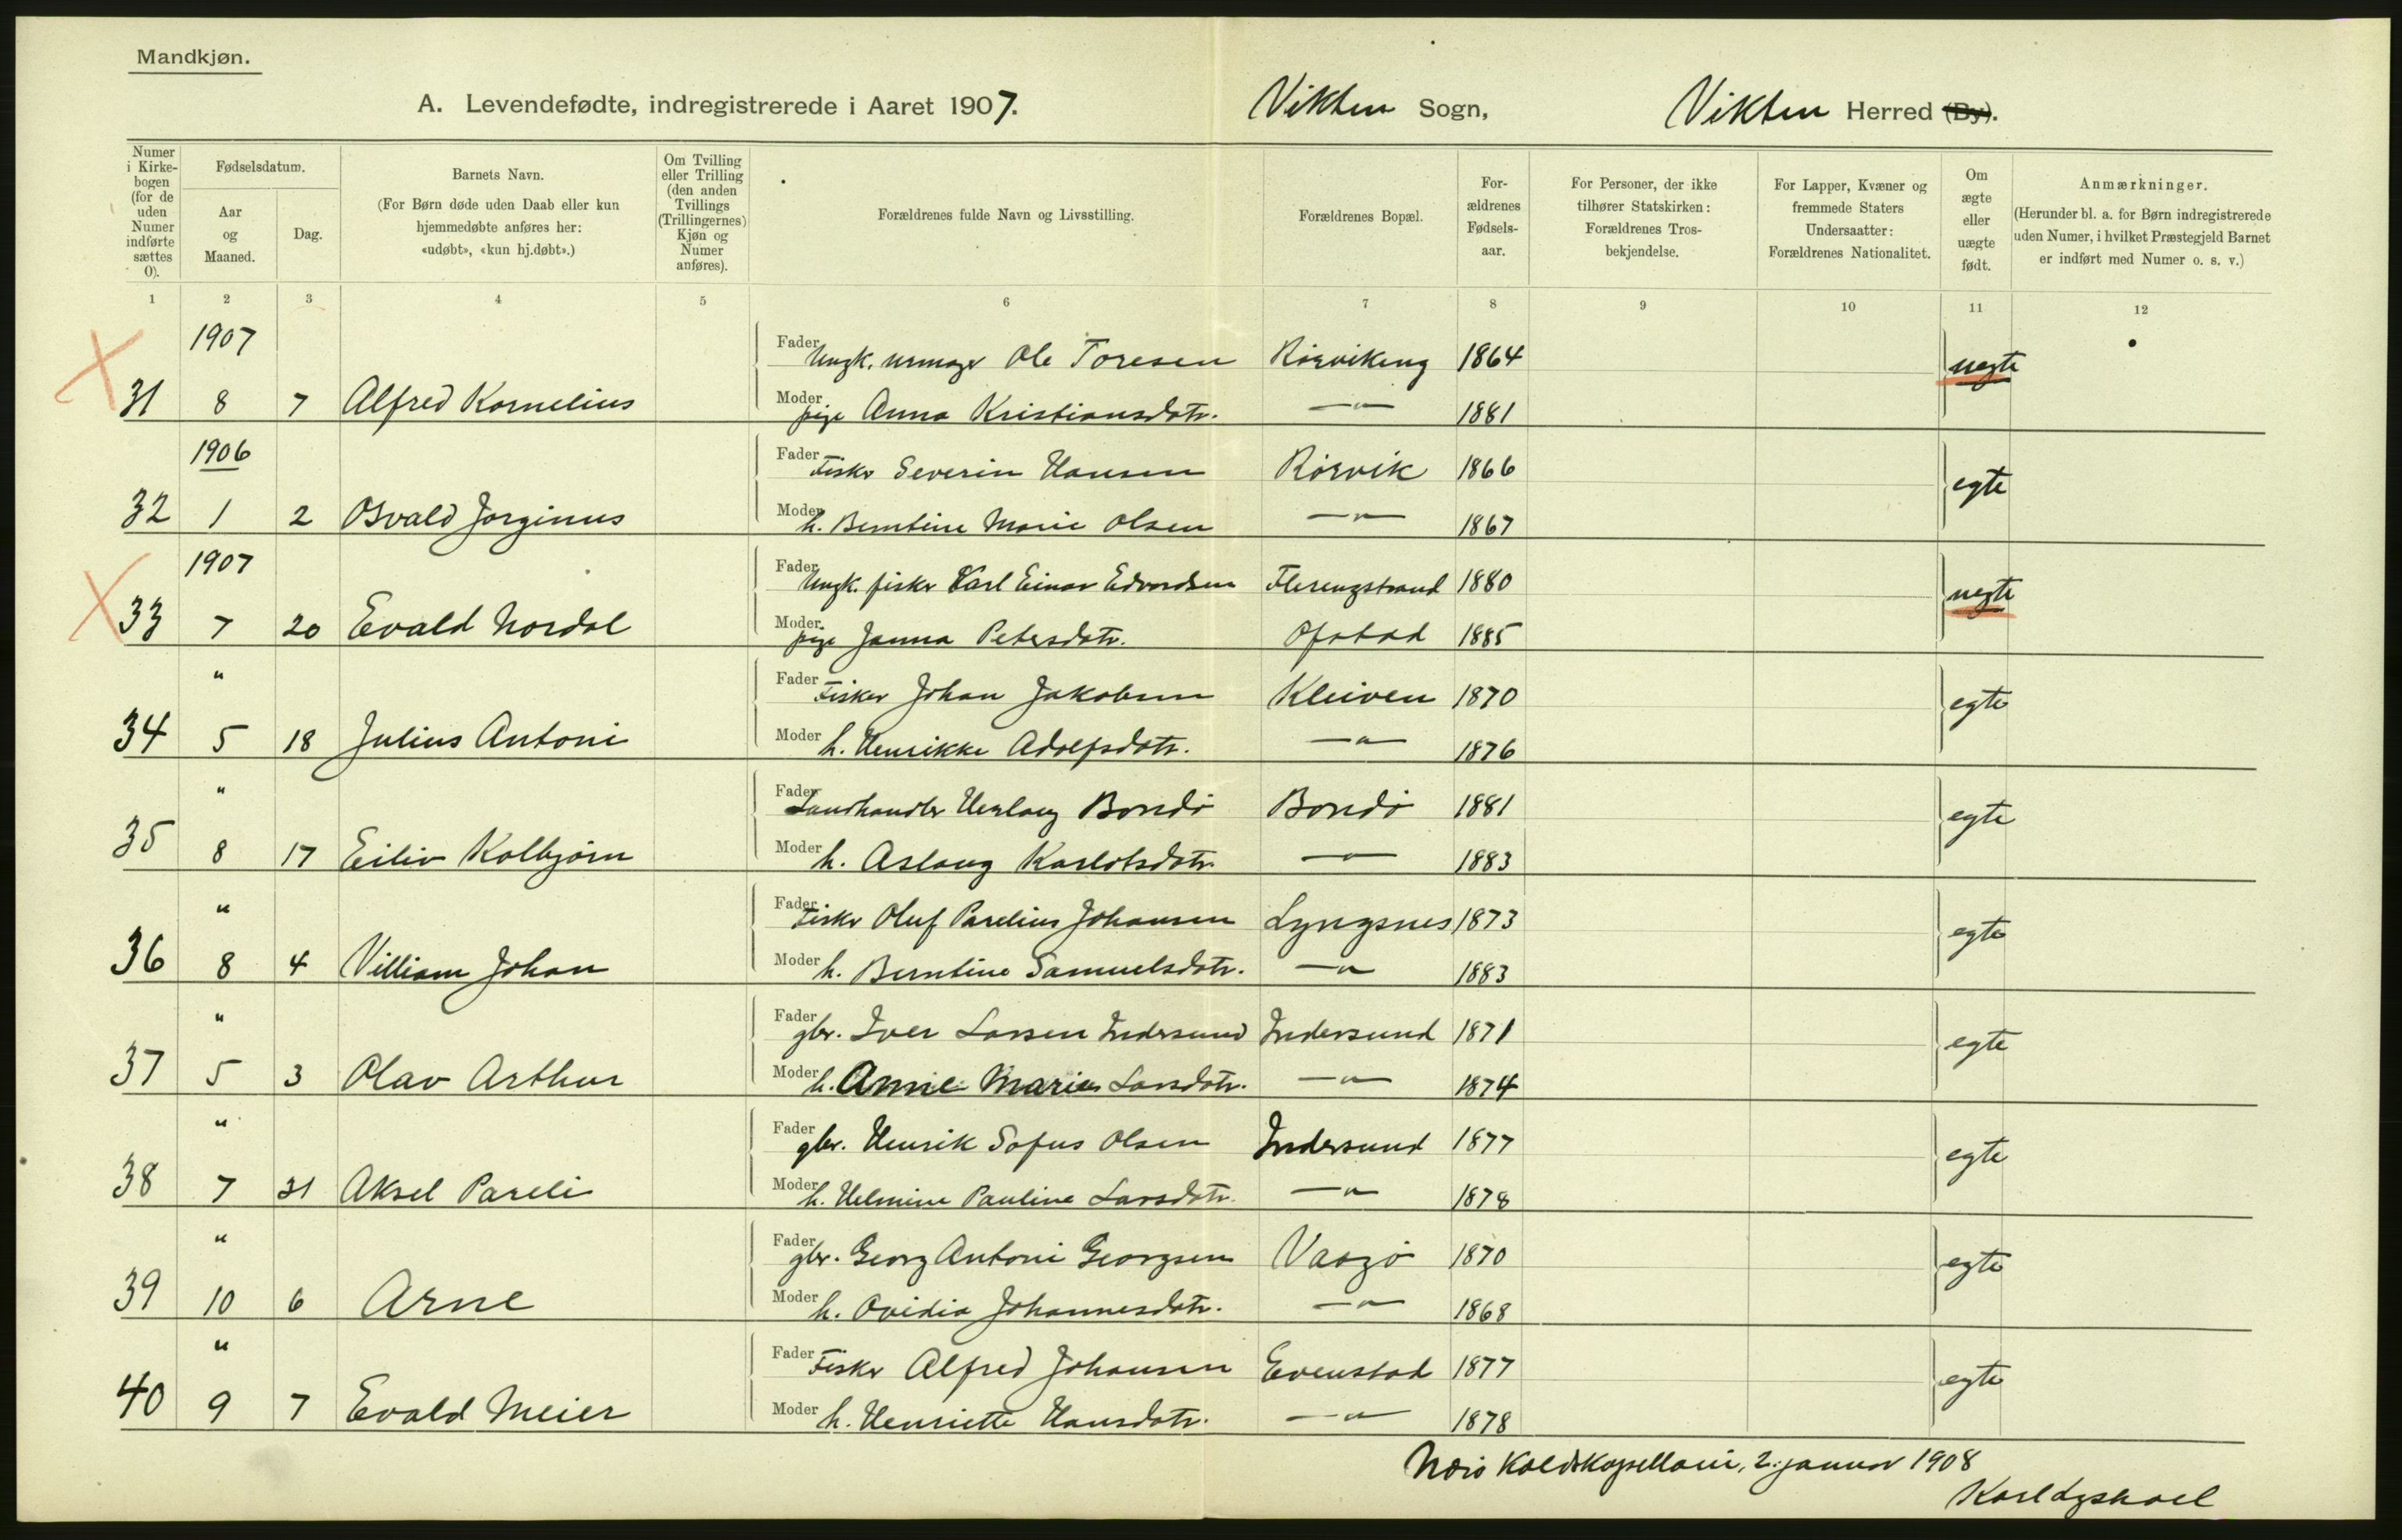 Mandkjøn.
A. Levendefødte, indregistrerede i Aaret 1907. Vikten Sogn, Vikten Herred (By).
Numer i Kirkebogen (for de uden Numer indførte sættes 0).
Fødselsdatum.
Aar og Maaned.
Dag.
Barnets Navn.
(For Børn døde uden Daab eller kun hjemmedøbte anføres her: «udøbt», «kun hj.døbt».)
Om Tvilling eller Trilling (den anden Tvillings (Trillingernes) Kjøn og Numer anføres).
Forældrenes fulde Navn og Livsstilling.
Forældrenes Bopæl.
Forældrenes Fødselsaar.
For Personer, der ikke tilhører Statskirken: Forældrenes Trosbekjendelse.
For Lapper, Kvæner og fremmede Staters Undersaatter: Forældrenes Nationalitet.
Om ægte eller uægte født.
Anmærkninger.
(Herunder bl. a. for Børn indregistrerede uden Numer, i hvilket Præstegjeld Barnet er indført med Numer o. s. v.)
1 2 3 4 5 6 7 8 9 10 11 12
1907 Fader Ungk. urmager Ole Toresen 1864 uegte
31 8 7 Alfred Kornelius Moder pige Anna Kristiansdatr. —"— 1881
1906 Fader Fisker Severin Hansen Rørvik 1866 egte
32 1 2 Osvald Jørginus Moder h. Berntine Marie Olsen —"— 1867
1907 Fader Ungk. fisker Karl Einar Edvardsen Flerengstrand 1880 uegte
33 7 20 Evald Nordal Moder pige Janna Petersdatr. Ofstad 1885
" Fader Fisker Johan Jakobsen Kleiven 1870 egte
34 5 18 Julius Antoni Moder h. Henrikke Adolfsdatr. —"— 1876
" Fader Landhandler Herlaug Bondø Bondø 1881 egte
35 8 17 Eiliv Kolbjørn Moder h. Aslaug Karlotsdatr. —"— 1883
" Fader Fisker Oluf Parelius Johansen Lyngsnes 1873 egte
36 8 4 Villiam Johan Moder h. Berntine Samuelsdatr. —"— 1883
" Fader gbr. Iver Larsen Indersund Indersund 1871 egte
37 5 3 Olav Arthur Moder h. Anne Marie Larsdatr. —"— 1874
" Fader gbr. Henrik Sofus Olsen Indersund 1877 egte
38 7 31 Aksel Pareli Moder h. Helmine Pauline Larsdatr. —"— 1878
" Fader gbr. Georg Antoni Georgsen Vaagø 1870 egte
39 10 6 Arne Moder h. Ovidia Johannesdatr. —"— 1868
" Fader Fisker Alfred Johansen Evenstad 1877 egte
40 9 7 Evald Meier Moder h. Henriette Hansdatr. —"— 1878
Nærø 2. januar 1908
Karl